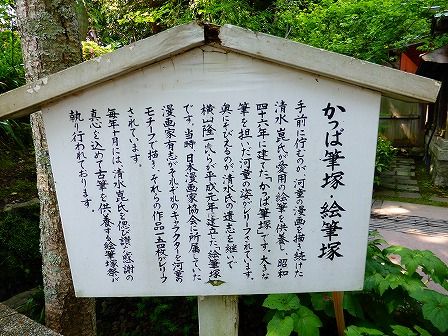 かっぱ筆塚 絵筆塚
手前に佇むのが、河童の漫画を描き続けた
清水 崑氏が愛用の絵筆を供養し、昭和
四十六年に建てた"かっぱ筆塚"です。大きな
筆を担いだ河童の姿がレリーフされています。
奥にそびえるのが清水氏の遺志を継いで
横山隆一氏らが平成元年に建立した"絵筆塚"
です。当時、日本漫画家協会に所属していた
漫画家有志がそれぞれのキャラクターを河童の
モチーフで描き、それらの作品一五四枚がレリーフ
されています。
毎年十月には、清水崑氏を偲び讃え、感謝の
真心を込めて古筆を供養する絵筆塚祭が
執り行われております。